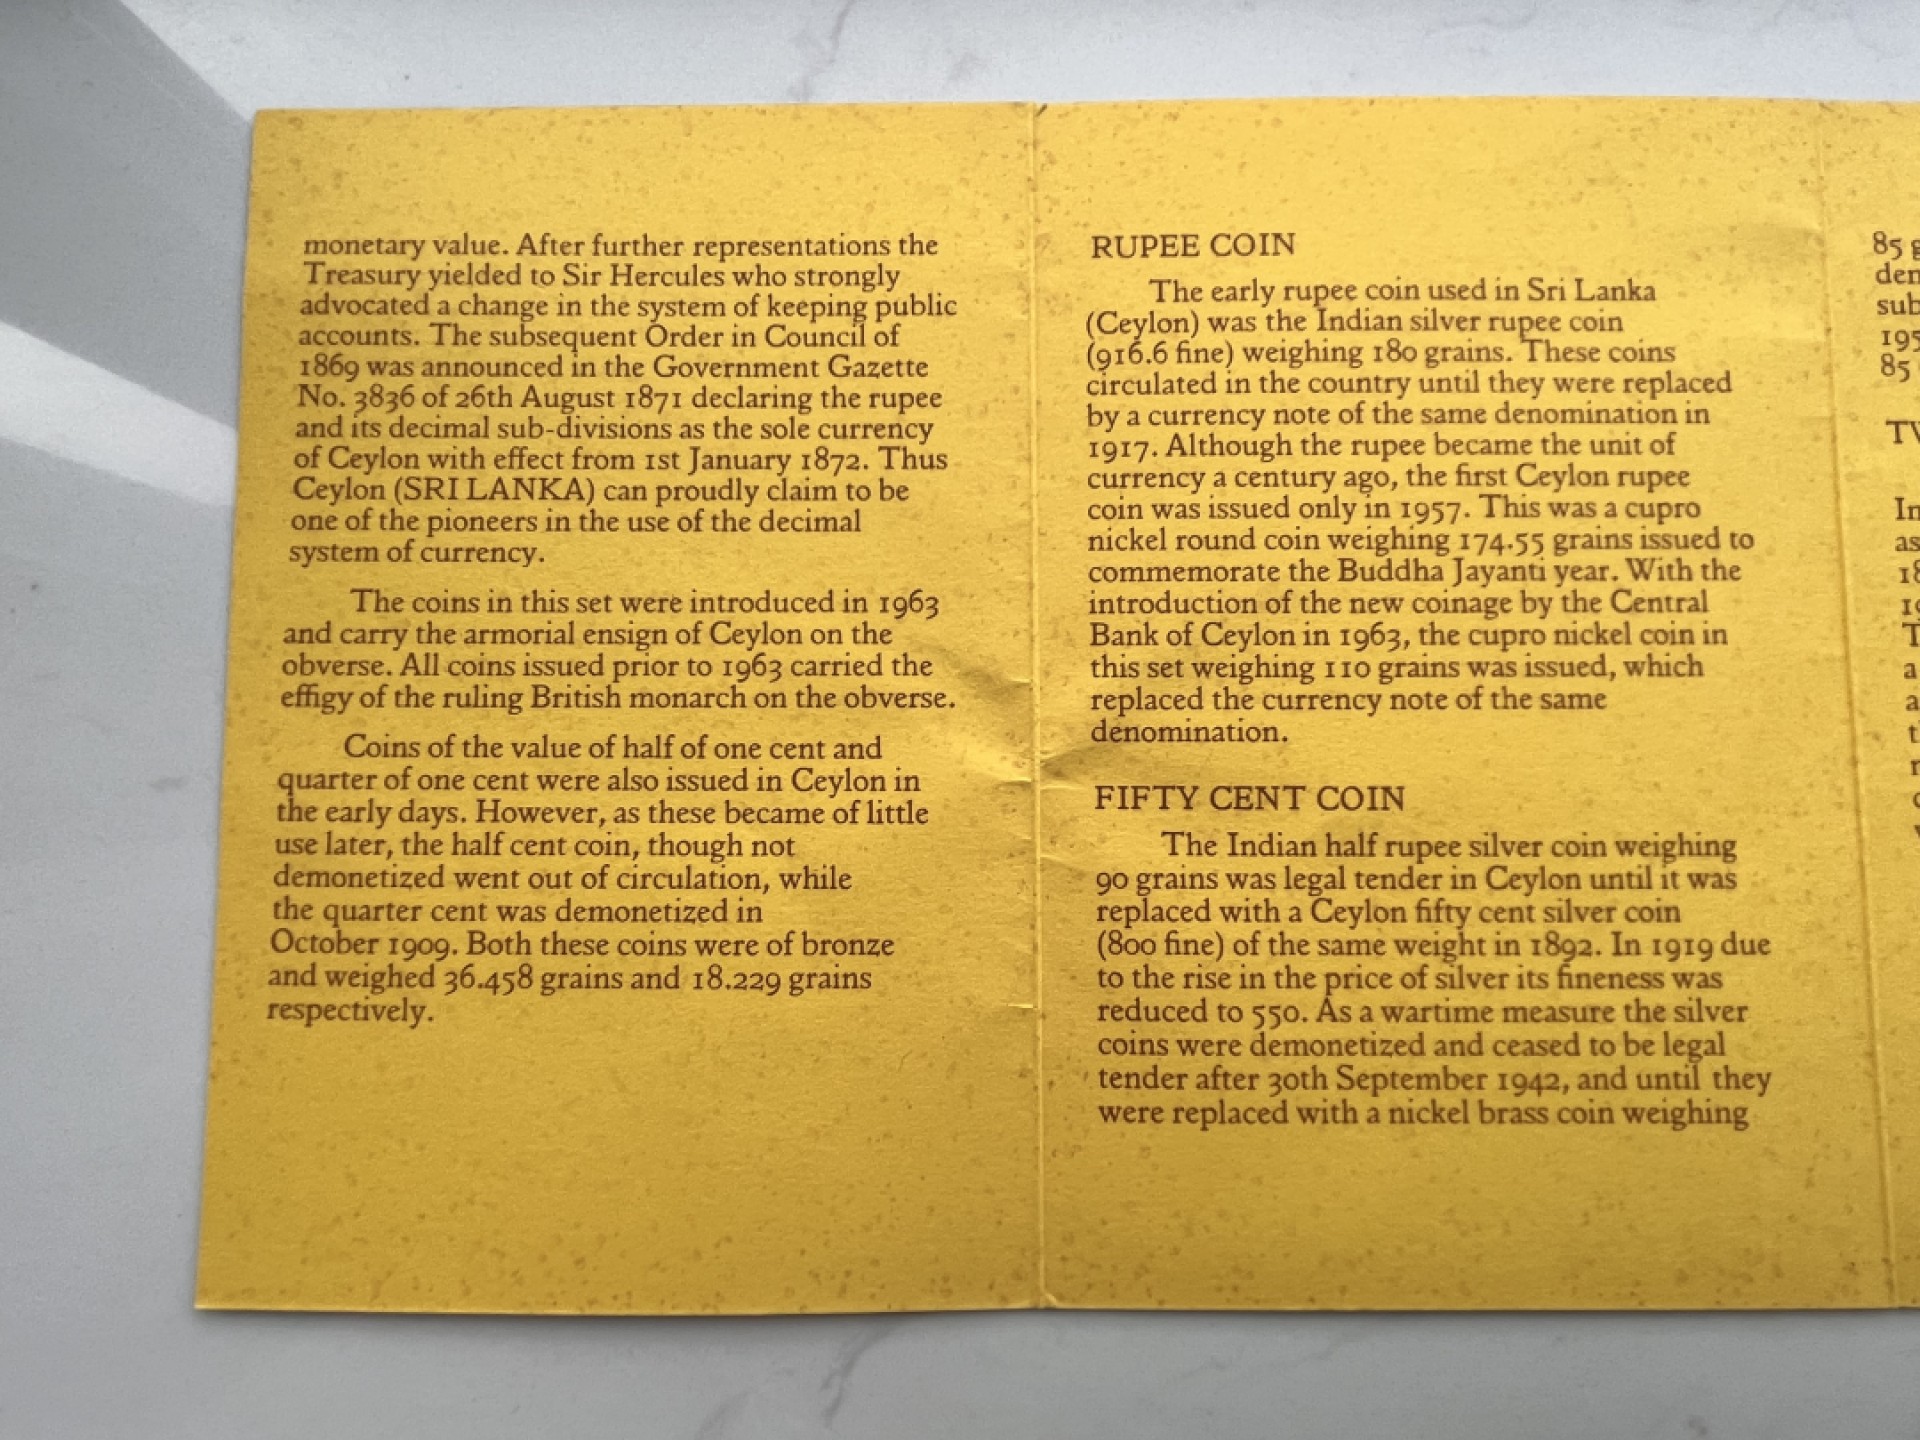 monetary value. After further representations the
Treasury yielded to Sir Hercules who strongly
advocated a change in the system of keeping public
accounts. The subsequent Order in Council of
1869 was announced in the Government Gazette
No. 3836 of 26th August 1871 declaring the rupee
and its decimal sub-divisions as the sole currency
of Ceylon with effect from 1st January 1872. Thus
Ceylon (SRI LANKA) can proudly claim to be
one of the pioneers in the use of the decimal
system of currency.
The coins in this set were introduced in 1963
and carry the armorial ensign of Ceylon on the
obverse. All coins issued prior to 1963 carried the
effigy of the ruling British monarch on the obverse.
Coins of the value of half of one cent and
quarter of one cent were also issued in Ceylon in
the early days. However, as these became of little
use later, the half cent coin, though not
demonetized went out of circulation, while
the quarter cent was demonetized in
October 1909. Both these coins were of bronze
and weighed 36.458 grains and 18.229 grains
respectively.
RUPEE COIN
The early rupee coin used in Sri Lanka
(Ceylon) was the Indian silver rupee coin
(916.6 fine) weighing 180 grains. These coins
circulated in the country until they were replaced
by a currency note of the same denomination in
1917. Although the rupee became the unit of
currency a century ago, the first Ceylon rupee
coin was issued only in 1957. This was a cupro
nickel round coin weighing 174.55 grains issued to
commemorate the Buddha Jayanti year. With the
introduction of the new coinage by the Central
Bank of Ceylon in 1963, the cupro nickel coin in
this set weighing 110 grains was issued, which
replaced the currency note of the same
denomination.
FIFTY CENT COIN
The Indian half rupee silver coin weighing
90 grains was legal tender in Ceylon until it was
replaced with a Ceylon fifty cent silver coin
(800 fine) of the same weight in 1892. In 1919 due
to the rise in the price of silver its fineness was
reduced to 550. As a wartime measure the silver
coins were demonetized and ceased to be legal
tender after 30th September 1942, and until they
were replaced with a nickel brass coin weighing
85
85